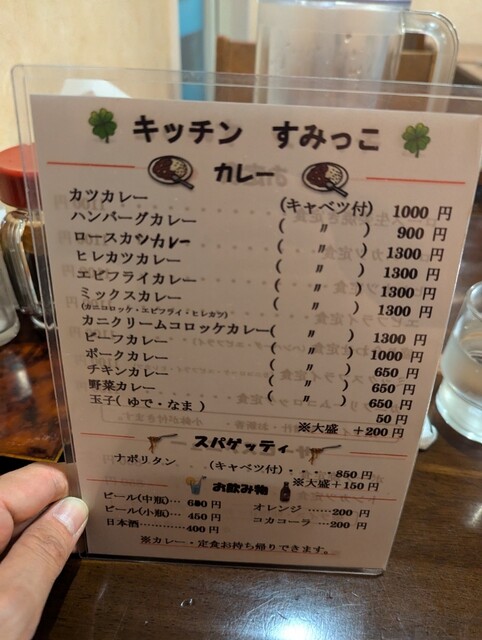 キッチン すみっこ
カレー
カツカレー (キャベツ付) 1000 円
ハンバーグカレー ( 〃 ) 900 円
ロースカツカレー ( 〃 ) 1300 円
ヒレカツカレー ( 〃 ) 1300 円
エビフライカレー ( 〃 ) 1300 円
ミックスカレー ( 〃 )
(カニコロッケ・エビフライ・ヒレカツ)
カニクリームコロッケカレー( 〃 ) 1300 円
ビーフカレー ( 〃 ) 1000 円
ポークカレー ( 〃 ) 650 円
チキンカレー ( 〃 ) 650 円
野菜カレー ( 〃 ) 650 円
玉子( ゆで・なま ) 50 円
※大盛 +200 円
スパゲッティ
ナポリタン (キャベツ付)・・・・850 円
※大盛+150 円
お飲み物
ビール(中瓶)… 600 円
ビール(小瓶)… 450 円
日本酒…………400 円
オレンジ ……200 円
コカコーラ …200 円
※カレー・定食お持ち帰りできます。